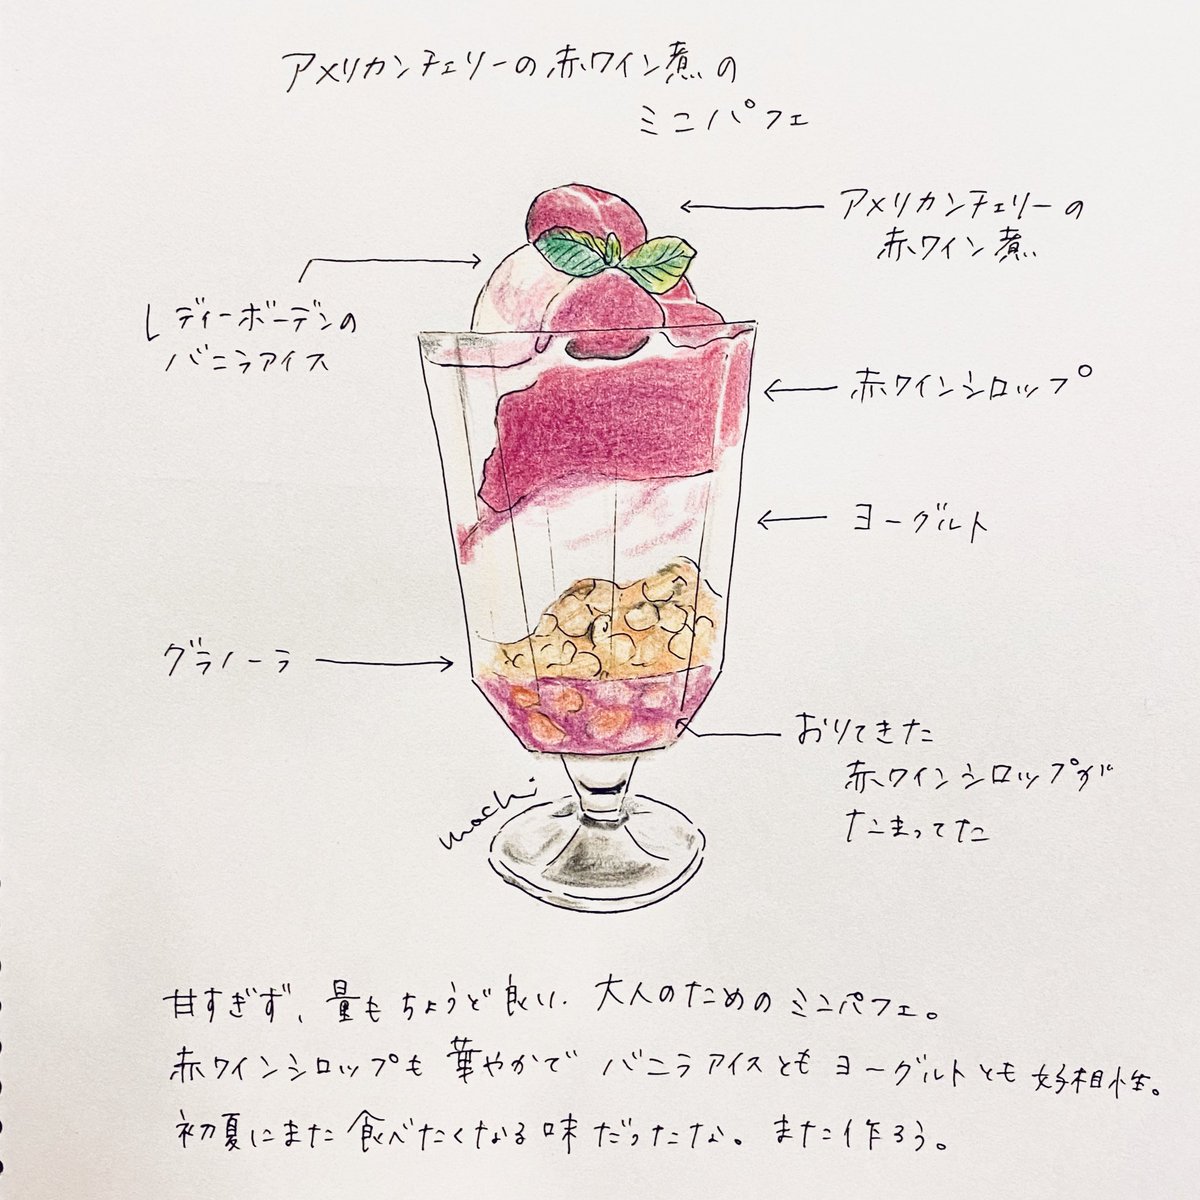 アメリカンチェリーの赤ワイン煮の
ミニパフェ
アメリカンチェリーの
赤ワイン煮
レディーボーデンの
バニラアイス
赤ワインシロップ
ヨーグルト
グラノーラ
おりてきた
赤ワインシロップが
たまってた
machi
甘すぎず、量もちょうど良い、大人のためのミニパフェ。
赤ワインシロップも華やかでバニラアイスともヨーグルトとも好相性。
初夏にまた食べたくなる味だったな。また作ろう。